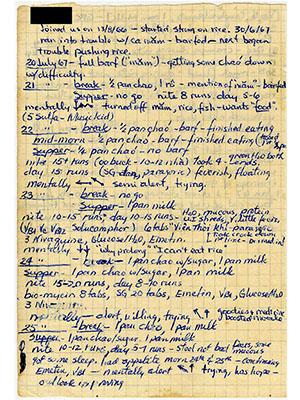 Joined us on 13/8/66 - started strong on rice. 30/6/67
ran into trouble w/ ca mắm - barfed - next began
trouble pushing rice.
20 July 67 - full barf ("mắm") - getting some chao down
w/difficulty.
21 " - break - ½ pan chao, 1 rô - mention of "mắm" barfed
Supper - no go nite 8 runs day 5-6
mentally turned off mắm, rice, fish - wants "food".
(5 Sulfa - Musickid)
22 " - break - ½ pan chao - barf - finished eating
mid-morn - ½ pan chao - barf - finished eating
Supper - ½ pan chao - no barf
nite 15+ runs took 4 - sends. green H2O both
day 15 runs (SG paregoric) feverish, floating
mentally semi alert, trying.
23 " - break - no go
Supper - 1 pan milk
nite 10-15 runs - day 10-15 runs - H2O, mucous, protein
3 Nivaquine, Glucose H2O, Emetin
mentally "I can't eat rice"
24 " - break - 1 pan chao w/sugar, 1 pan milk
Supper - 1 pan chao w/sugar, 1 pan milk
nite 15-20 runs, day 8-10 runs
bio-mycin 8 tabs, SG 20 tabs, Emetin, VB1, Glucose H2O
mentally - alert, willing, trying goodies & medicine boosted morale
25 " - break - 1 pan chao, 1 pan milk
Supper - 1 pan chao/sugar, 1 pan milk
nite 10-12 runs, day 5-7 runs - stool not but some mucous
got some sleep. had appetite more 24th & 25th - continuing
Emetin, VB1 - mentally alert trying, has hope -
outlook improving